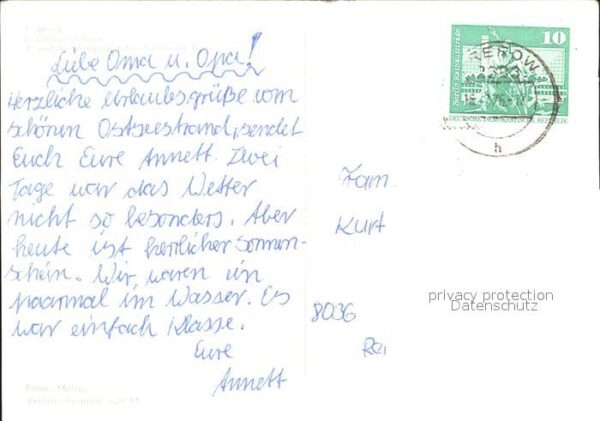 Liebe Oma u. Opa!
Herzliche Urlaubsgrüße vom
schönen Ostseestrand, sendet
Euch Eure Annett. Zwei
Tage war das Wetter
nicht so besonders. Aber
heute ist herrlicher Sonnen-
schein. Wir waren in
paarmal im Wasser. Es
war einfach Klasse.
Eure
Annett
10
Berlin, Rathausstraße
DEUTSCHE DEMOKRATISCHE REPUBLIK
h
Fam.
Kurt
8036
privacy protection
Datenschutz